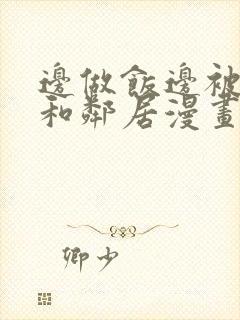 邊做飯邊被
和鄰居漫畫
卿少